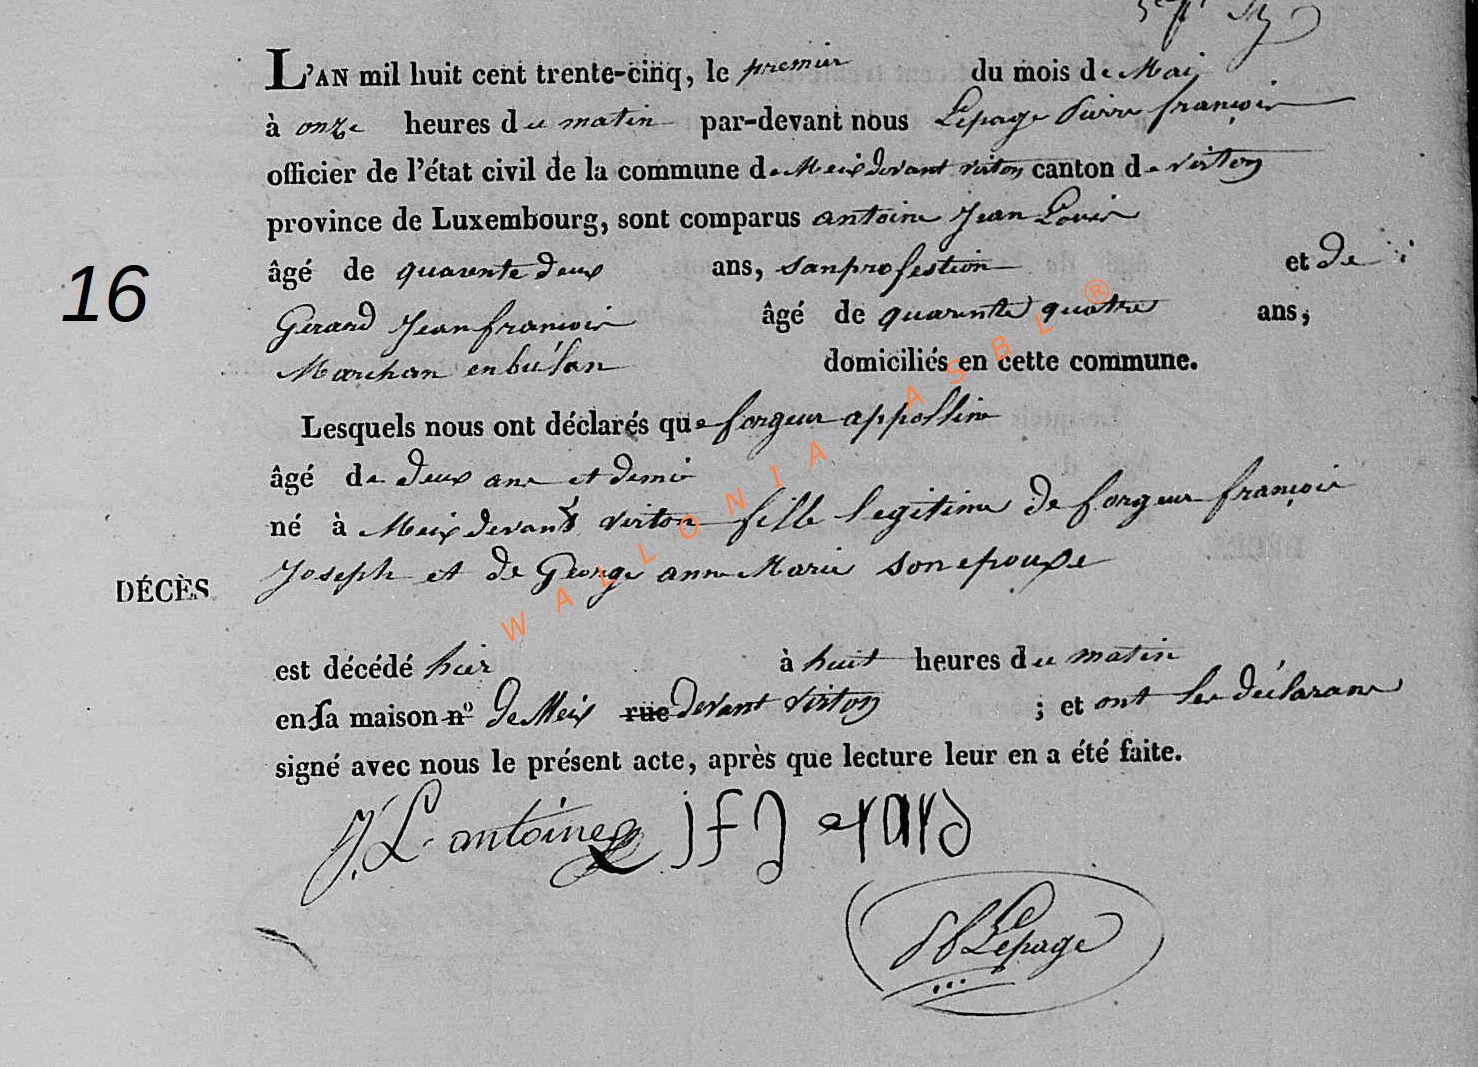 L'AN mil huit cent trente-cinq, le premier du mois de Mai
à onze heures du matin par-devant nous Lepage Pierre françois
officier de l'état civil de la commune de Meix devant virton canton de virton
province de Luxembourg, sont comparus antoine Jean Louis
âgé de quarente deux ans, sanprofestion et de
16
Gerard Jean francois âgé de quarente quatre ans,
Marchan enbu'lan domiciliés en cette commune.
Lesquels nous ont déclarés que forgeur appolline
âgé de deux ans et demie
né à Meix devant virton fille legitime de forgeur françois
Joseph et de George anne Marie son epouse
DÉCÈS
est décédé hier à huit heures du matin
en sa maison n° de Meix rue devant virton ; et ont les déclarans
signé avec nous le présent acte, après que lecture leur en a été faite.
J. L. antoine j f g erard
Lepage
WALLONIA ASBL ®